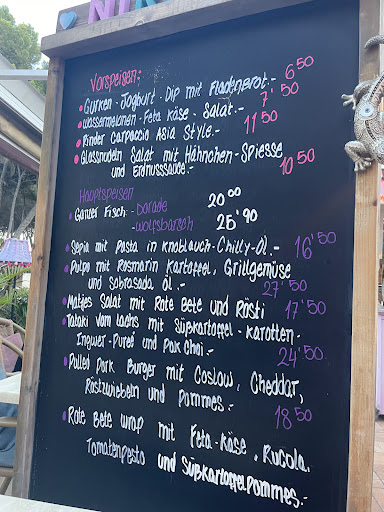 Vorspeisen:
• Gurken-Joghurt-Dip mit Fladenbrot.- 6'50
• Wassermelonen-Feta Käse-Salat.- 7'50
• Rinder Carpaccio Asia Style.- 11'50
• Glasnudeln Salat mit Hähnchen-Spiesse
und Erdnusssauce.- 10'50
Hauptspeisen
• Ganzer Fisch:-Dorade 20'00
-Wolfsbarsch 25'90
• Sepia mit Pasta in Knoblauch-Chilly-Öl.- 16'50
• Pulpo mit Rosmarin Kartoffel, Grillgemüse
und Sobrasada Öl.- 27'50
• Matjes Salat mit Rote Bete und Rösti 17'50
• Tataki vom Lachs mit Süßkartoffel-Karotten-
Ingwer-Pureé und Pak Choi.- 24'50
• Pulled Pork Burger mit Coslow, Cheddar,
Röstzwiebeln und Pommes.- 18'50
• Rote Bete Wrap mit Feta-Käse, Rucola,
Tomatenpesto und Süßkartoffelpommes.-